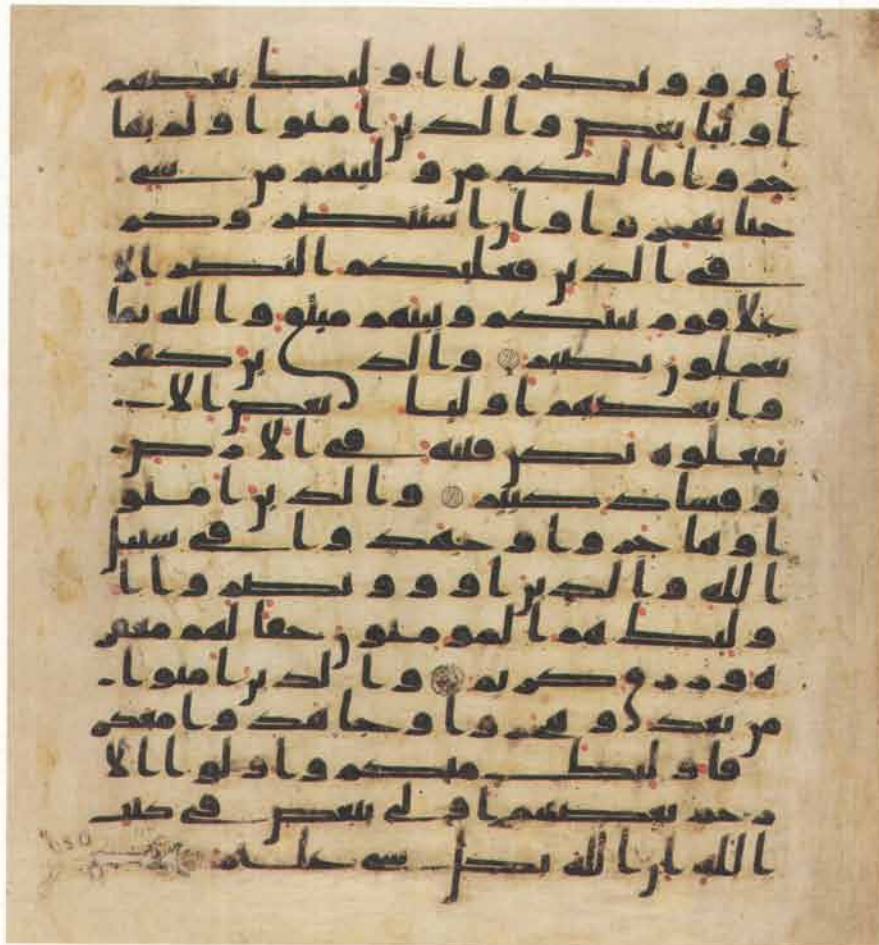 اووا ونصروا اولئك بعضهم
اوليا بعض والذين امنوا ولم يها
جروا ما لكم من وليتهم من شى
حتا يهجروا وان استنصروكم
فى الدين فعليكم النصر الا
علا قوم بينكم وبينهم ميثق والله بما
تعملون بصير والذين كفر
وا بعضهم اوليا بعض الا
تفعلوه تكن فتنه فى الارض
وفساد كبير والذين امنو
ا وهاجروا وجهدوا فى سبيل
الله والذين اووا ونصروا ا
ولئك هم المومنون حقا لهم مغفر
ه ورزق كريم والذين امنوا
من بعد وهجروا وجاهدوا معكم
فاولئك منكم واولوا الا
رحم بعضهم اولى ببعض فى كتب
الله ان الله بكل شى عليم